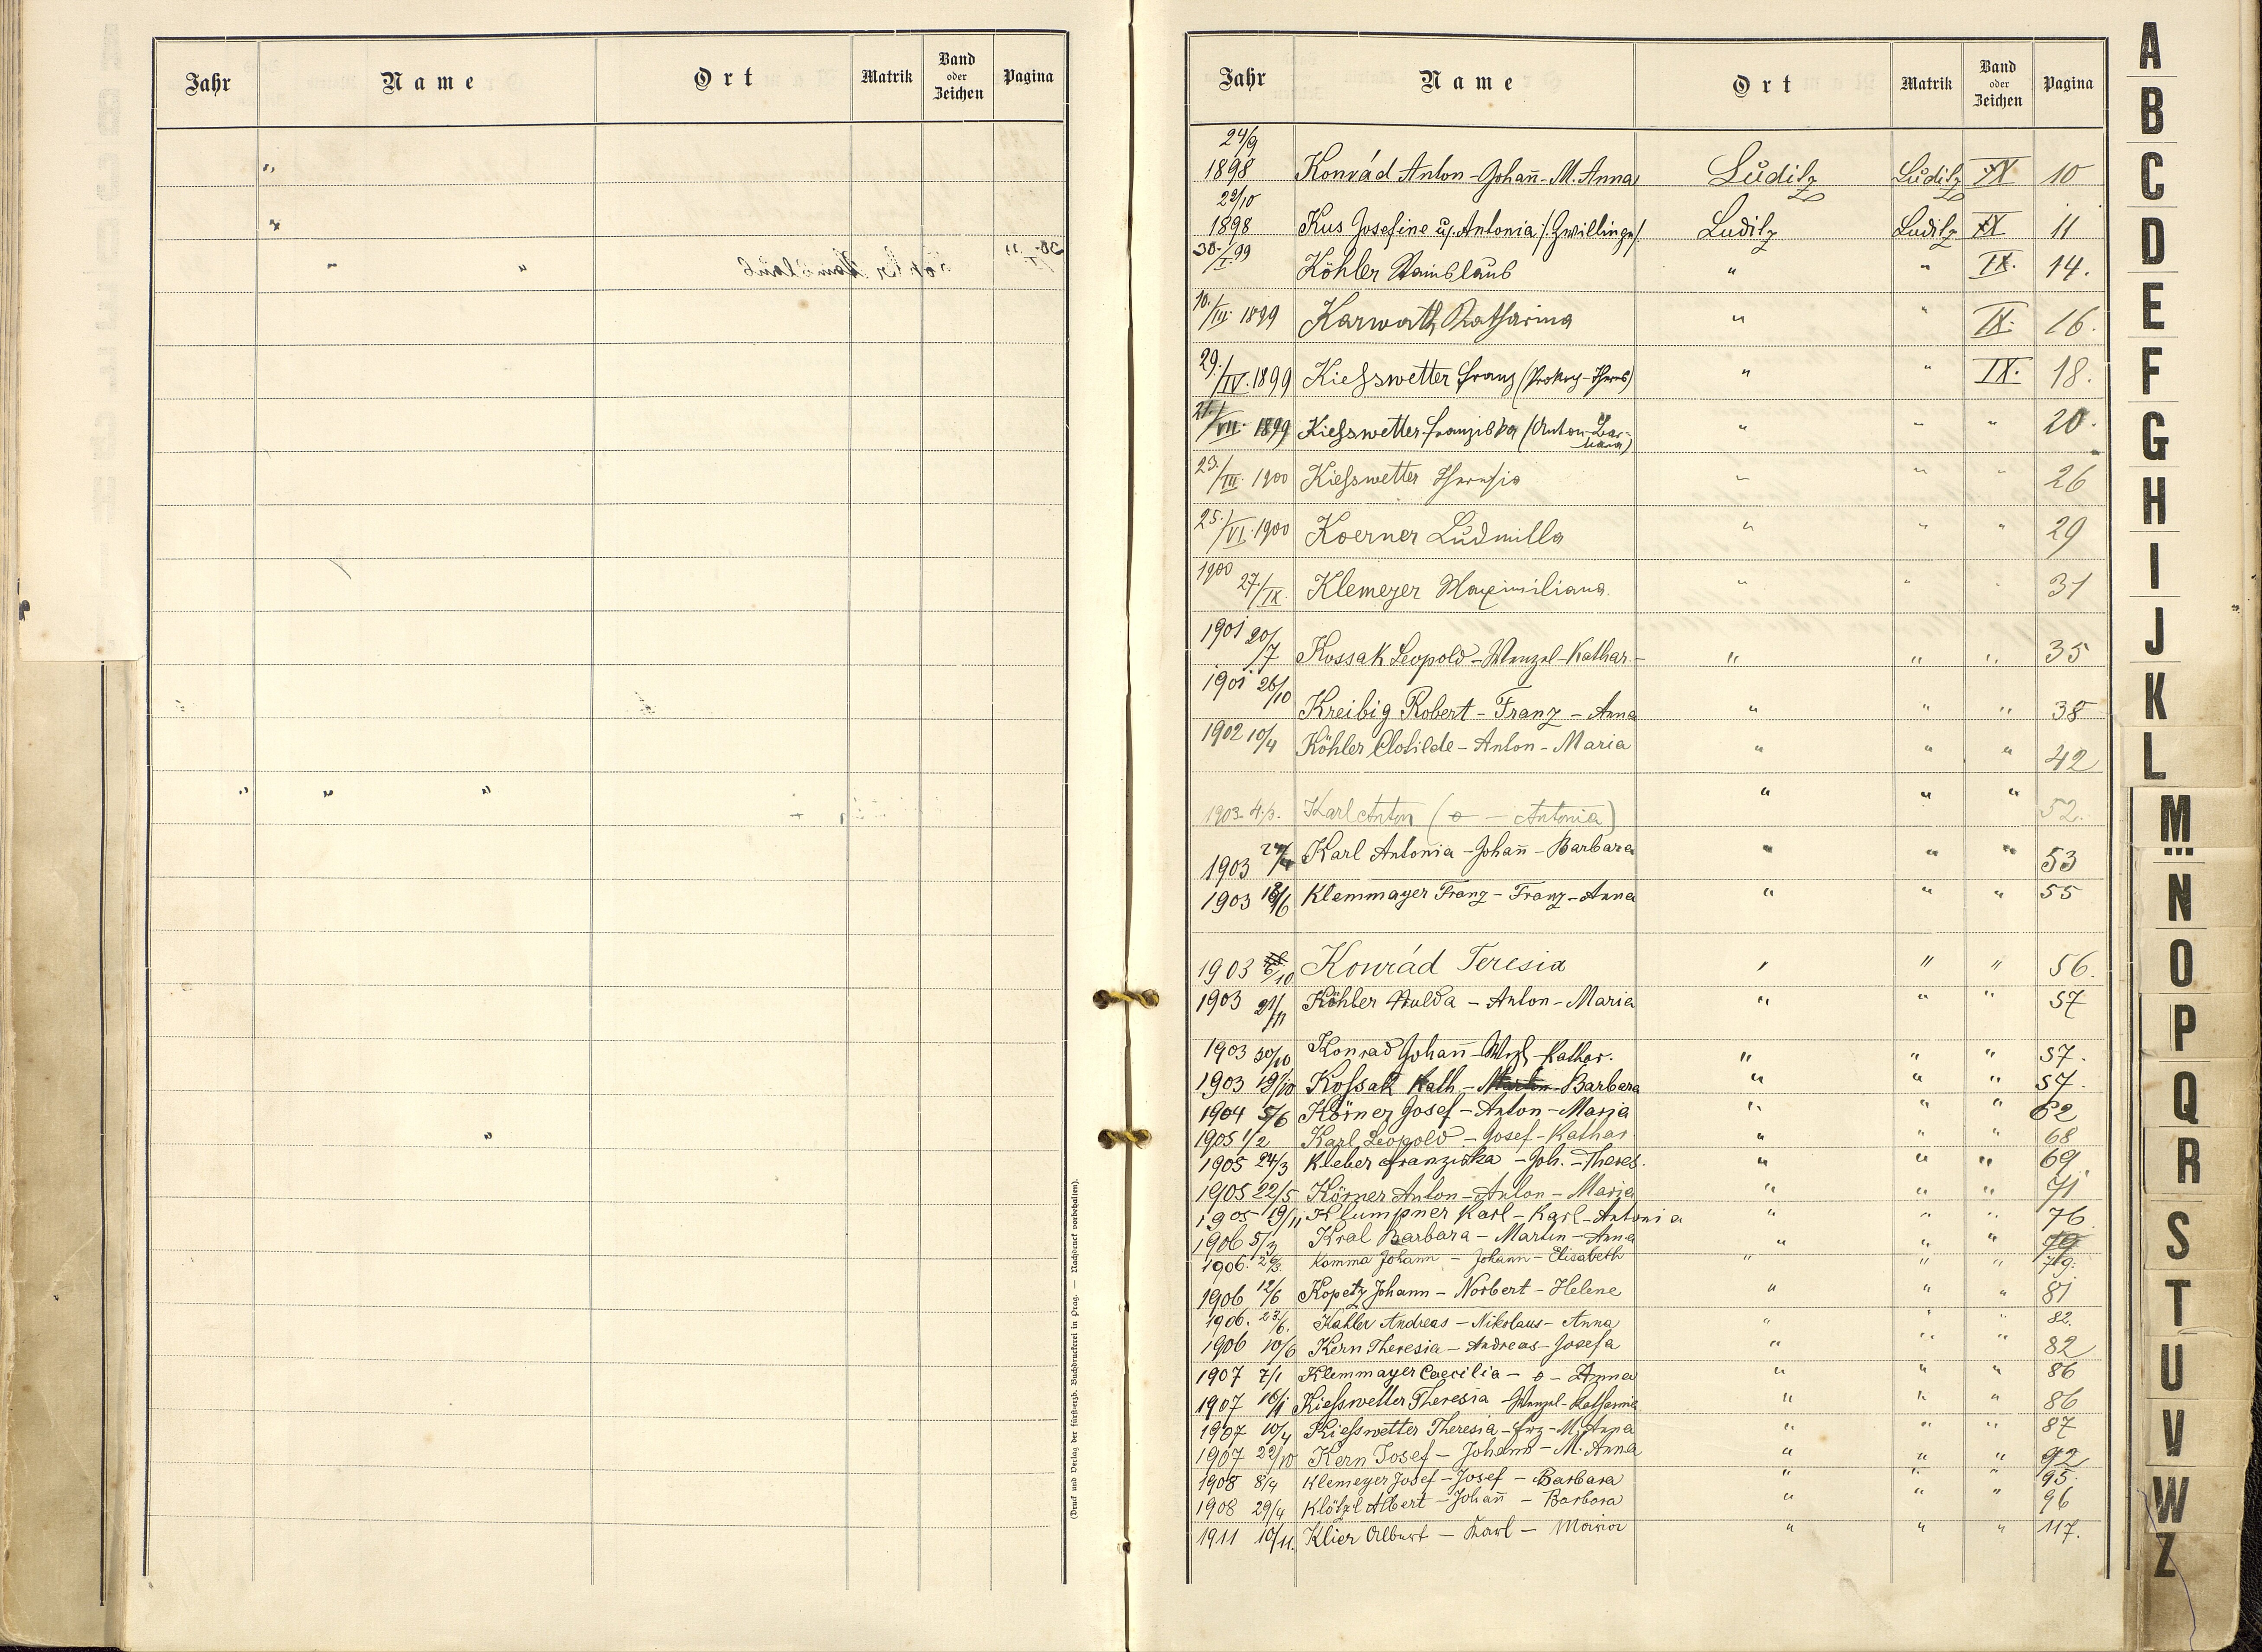 Jahr Name Ort Matrik Band oder Zeichen Pagina
(Druck und Verlag der fürsterzb. Buchdruckerei in Prag. — Nachdruck vorbehalten).
Jahr Name Ort Matrik Band oder Zeichen Pagina
24/9
1898 Konrád Anton - Johan̄ - M. Anna Luditz Luditz IX 10
1898 Kus Josefine u. Antonia /: Zwillinge/ Luditz Luditz IX 11
30./I. 99 Köhler Stanislaus " " IX. 14.
10./III. 1899 Karwath Katharina " " IX. 16.
29./IV. 1899 Kiesswetter Franz (Prokop - Theres) " " IX. 18.
21./VII. 1899 Kiesswetter Franziska (Anton - Barbara) " " " 20.
23./III. 1900 Kiesswetter Theresia " " " 26
25./VI. 1900 Koerner Ludmilla " " " 29
1900 27./IX. Klemeyer Maximiliana " " " 31
1901 20/7 Kossak Leopold - Wenzel - Kathar. - " " " 35
1901 26/10 Kreibig Robert - Franz - Anna " " " 38
1902 10/4 Köhler Clotilde - Anton - Maria " " " 42
1903 Karl Anton (o — Antonia) " " " 52.
1903 Karl Antonia - Johan̄ - Barbara " " " 53
1903 18/6 Klemmayer Franz - Franz - Anna " " " 55
1903 6/10 Konrád Teresia " " " 56.
1903 21/11 Köhler Hulda - Anton - Maria " " " 57
1903 30/10 Konrad Johan̄ - Wzl - Kathar. " " " 57.
1903 19/10 Kossak Kath. - Barbara " " " 57.
1904 5/6 Körner Josef - Anton - Maria " " " 62
1905 1/2 Karl Leopold - Josef - Kathar. " " " 68
1905 24/3 Kleber Franziska - Joh. - Theres. " " " 69
1905 22/5 Körner Anton - Anton - Maria " " " 71
1905 19/11 Klumpner Karl - Karl - Antonia " " " 76
1906 5/3 Kral Barbara - Martin - Anna " " " 79
1906. 26/3. Komma Johann - Johann - Elisabeth " " " 79.
1906 12/6 Kopetz Johann - Norbert - Helene " " " 81
1906. 23/6. Kahler Andreas - Nikolaus - Anna " " " 82.
1906 10/6 Kern Theresia - Andreas - Josefa " " " 82
1907 7/1 Klemmayer Caecilia - o - Anna " " " 86
1907 16/1 Kiesswetter Theresia - Wenzel - Katharina " " " 86
1907 10/4 Kiesswetter Theresia - Frz - M. Anna " " " 87
1907 22/10 Kern Josef - Johann - M. Anna " " " 92
1908 8/4 Klemeyer Josef - Josef - Barbara " " " 95.
1908 29/4 Klötzl Albert - Johan̄ - Barbara " " " 96
1911 10/11. Klier Albert - Karl - Maria " " " 117.
A
B
C
D
E
F
G
H
I
J
K
L
M
N
O
P
Q
R
S
T
U
V
W
Z